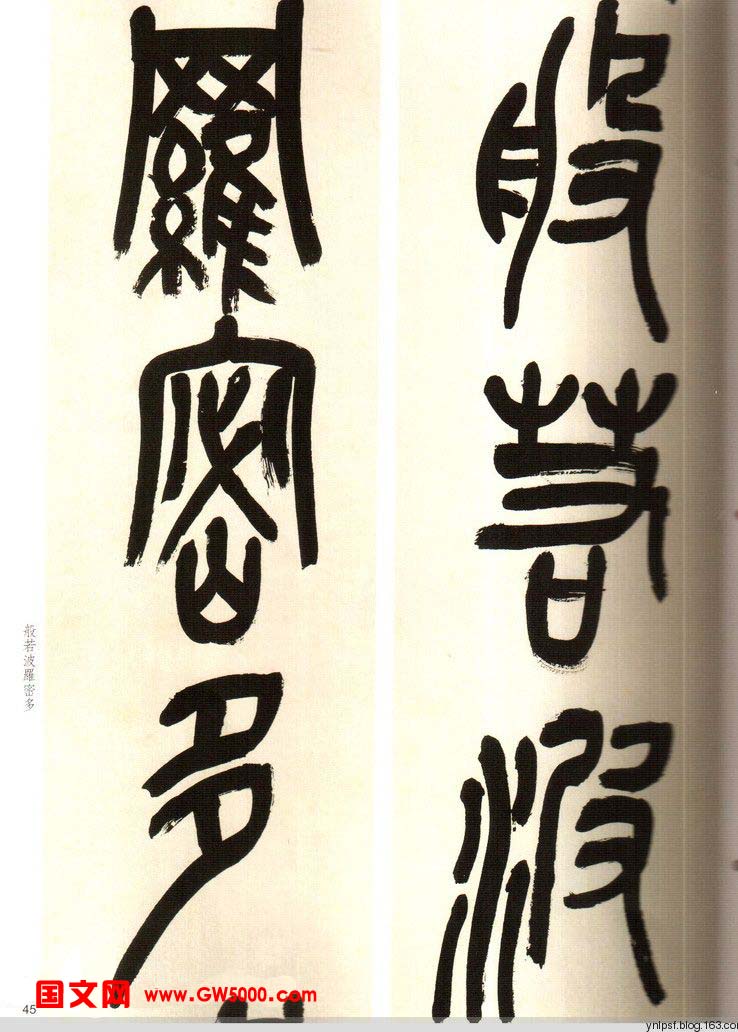 般若波
羅密多
般若波羅密多
45
国文网 www.GW5000.com
ynlpsf.blog.163.com